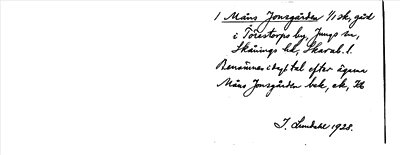 1 Måns Jonsgården 1/1 sk, gård
i Torestorps by, Jungs sn,
Skånings hd, Skarab. l.
Benämnes i dagl tal efter ägaren
Måns Jonsgården bek, ek,
I. Lundahl 1928.